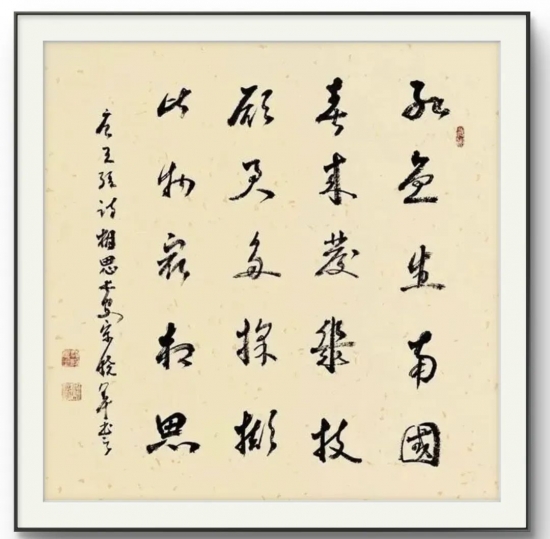 紅豆生南國
春來發幾枝
願君多採擷
此物最相思
唐王維詩相思